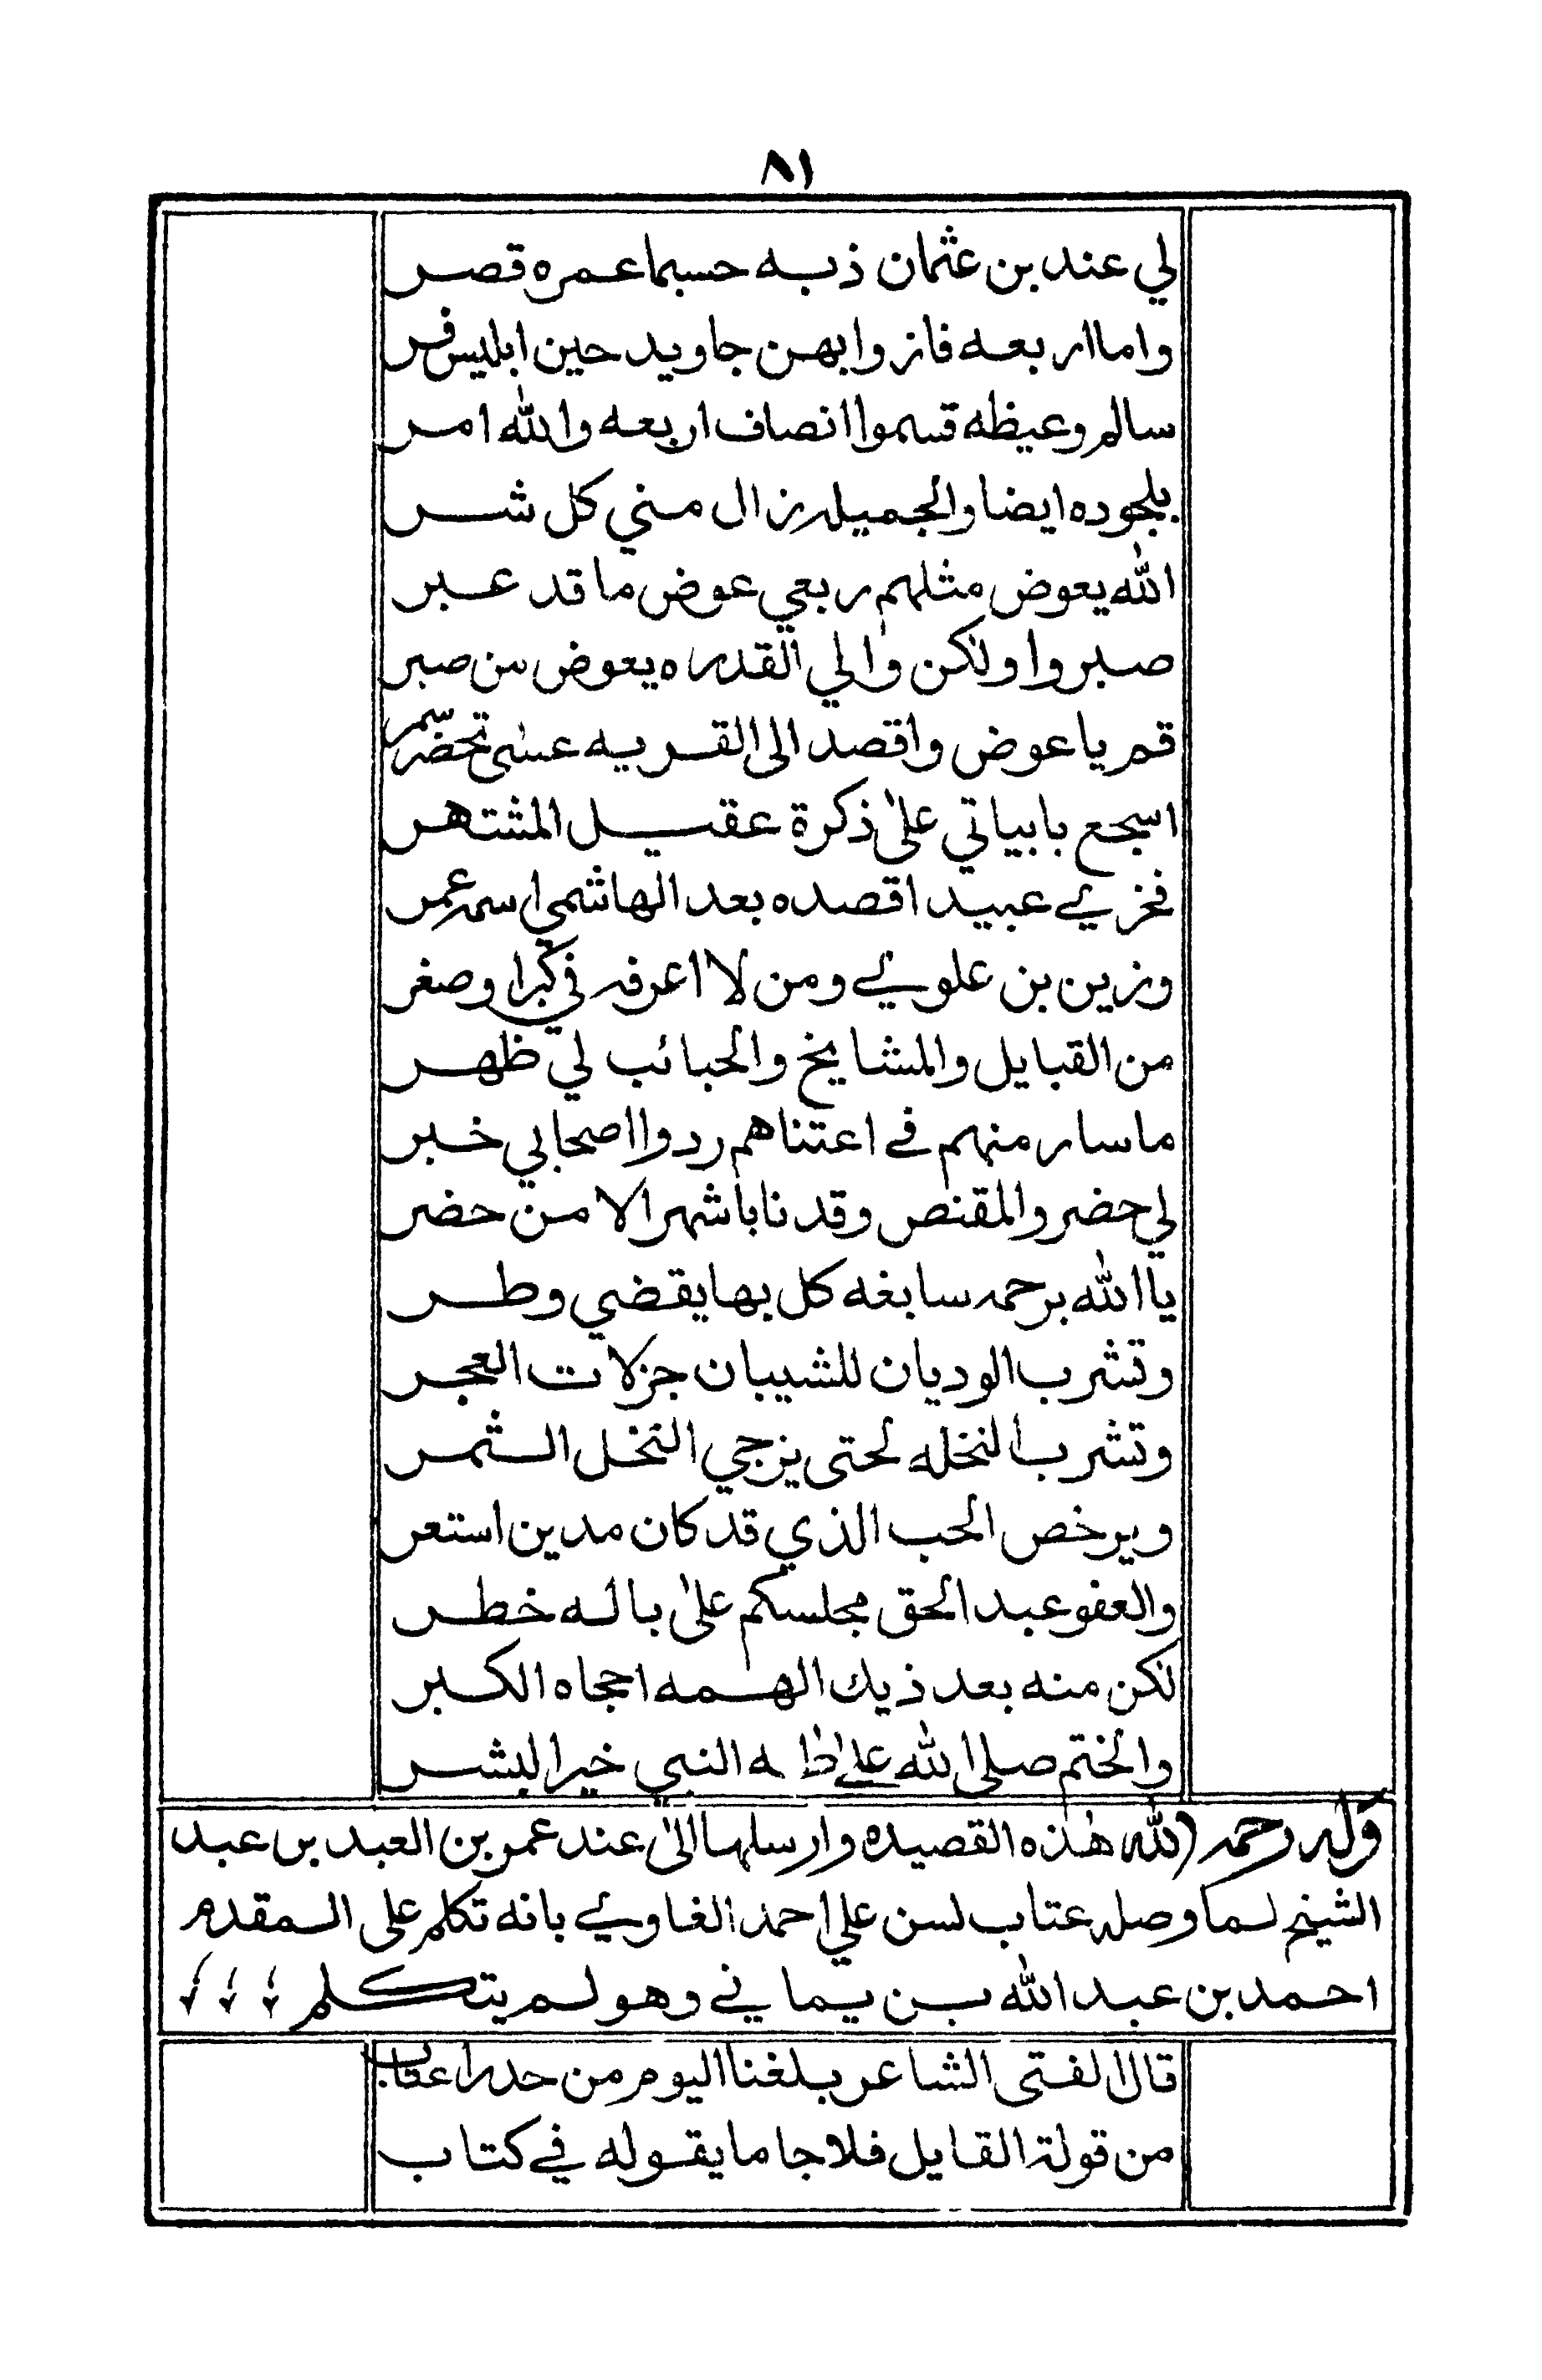 ٨١
لي عند بن عثمان ذبه حسبما عمره قصر
واما اربعه فازوا بهن جاويد حين ابليس فر
سالم وعيظه قسموا انصاف اربعه والله امر
بلجوده ايضا والجميله زال مني كل شر
الله يعوض مثلهم ربعي عوض ما قد عبر
صبروا ولكن والي القدره يعوض من صبر
قم يا عوض واقصد الى القريه عسى تحضر سمر
اسجع بابياتي على ذكرة عقيل المشتهر
فخري عبيد اقصده بعد الهاشمي اسمه عمر
وزين بن علوي ومن لا اعرفه في كبرا وصغر
من القبايل والمشايخ والحبائب لي ظهر
ما سار منهم في اعتناهم ردوا اصحابي خبر
لي حضر والمقنص وقدنا باشهر الا من حضر
يا الله برحمه سابغه كل بها يقضي وطر
وتشرب الوديان للشيبان جزلات العجر
وتشرب النخله لحتى يزجي النخل الثمر
ويرخص الحب الذي قد كان مدين استعر
والعفو عبد الحق مجلسكم على باله خطر
لكن منه بعد ذيك الهمه احجاه الكبر
والختم صلى الله على طه النبي خير البشر
وله رحمه الله هذه القصيده وارسلها الى عند عمر بن العبد بن عبد
الشيخ لما وصله عتاب لسن علي احمد الغاوي بانه تكلم على المقدم
احمد بن عبد الله بن يماني وهو لم يتكلم
قال الفتى الشاعر بلغنا اليوم من حدرا عتاب
من قولة القايل فلا جا ما يقوله في كتاب